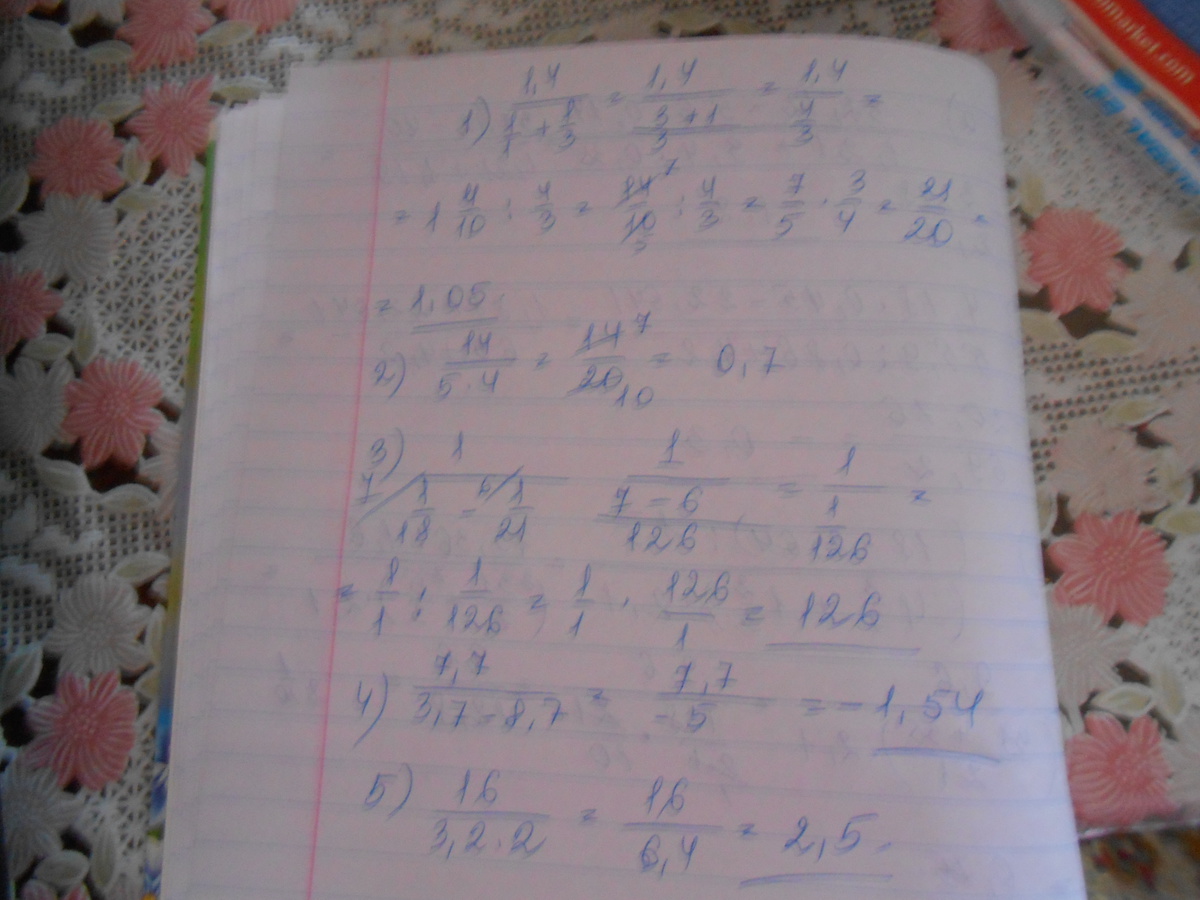 1) 1,4 / (1/1 + 1/3) = 1,4 / ((3+1)/3) = 1,4 / (4/3) =
= 1 4/10 : 4/3 = 14/10 7 5 : 4/3 = 7/5 · 3/4 = 21/20 =
= 1,05
2) 14 / (5·4) = 14/20 7 10 = 0,7
3) 1 / (7/ 1/18 - 6/ 1/21) 1 / ((7-6)/126) = 1 / (1/126) =
= 1/1 : 1/126 = 1/1 · 126/1 = 126
4) 7,7 / (3,7-8,7) = 7,7 / -5 = -1,54
5) 16 / (3,2·2) = 16 / 6,4 = 2,5.